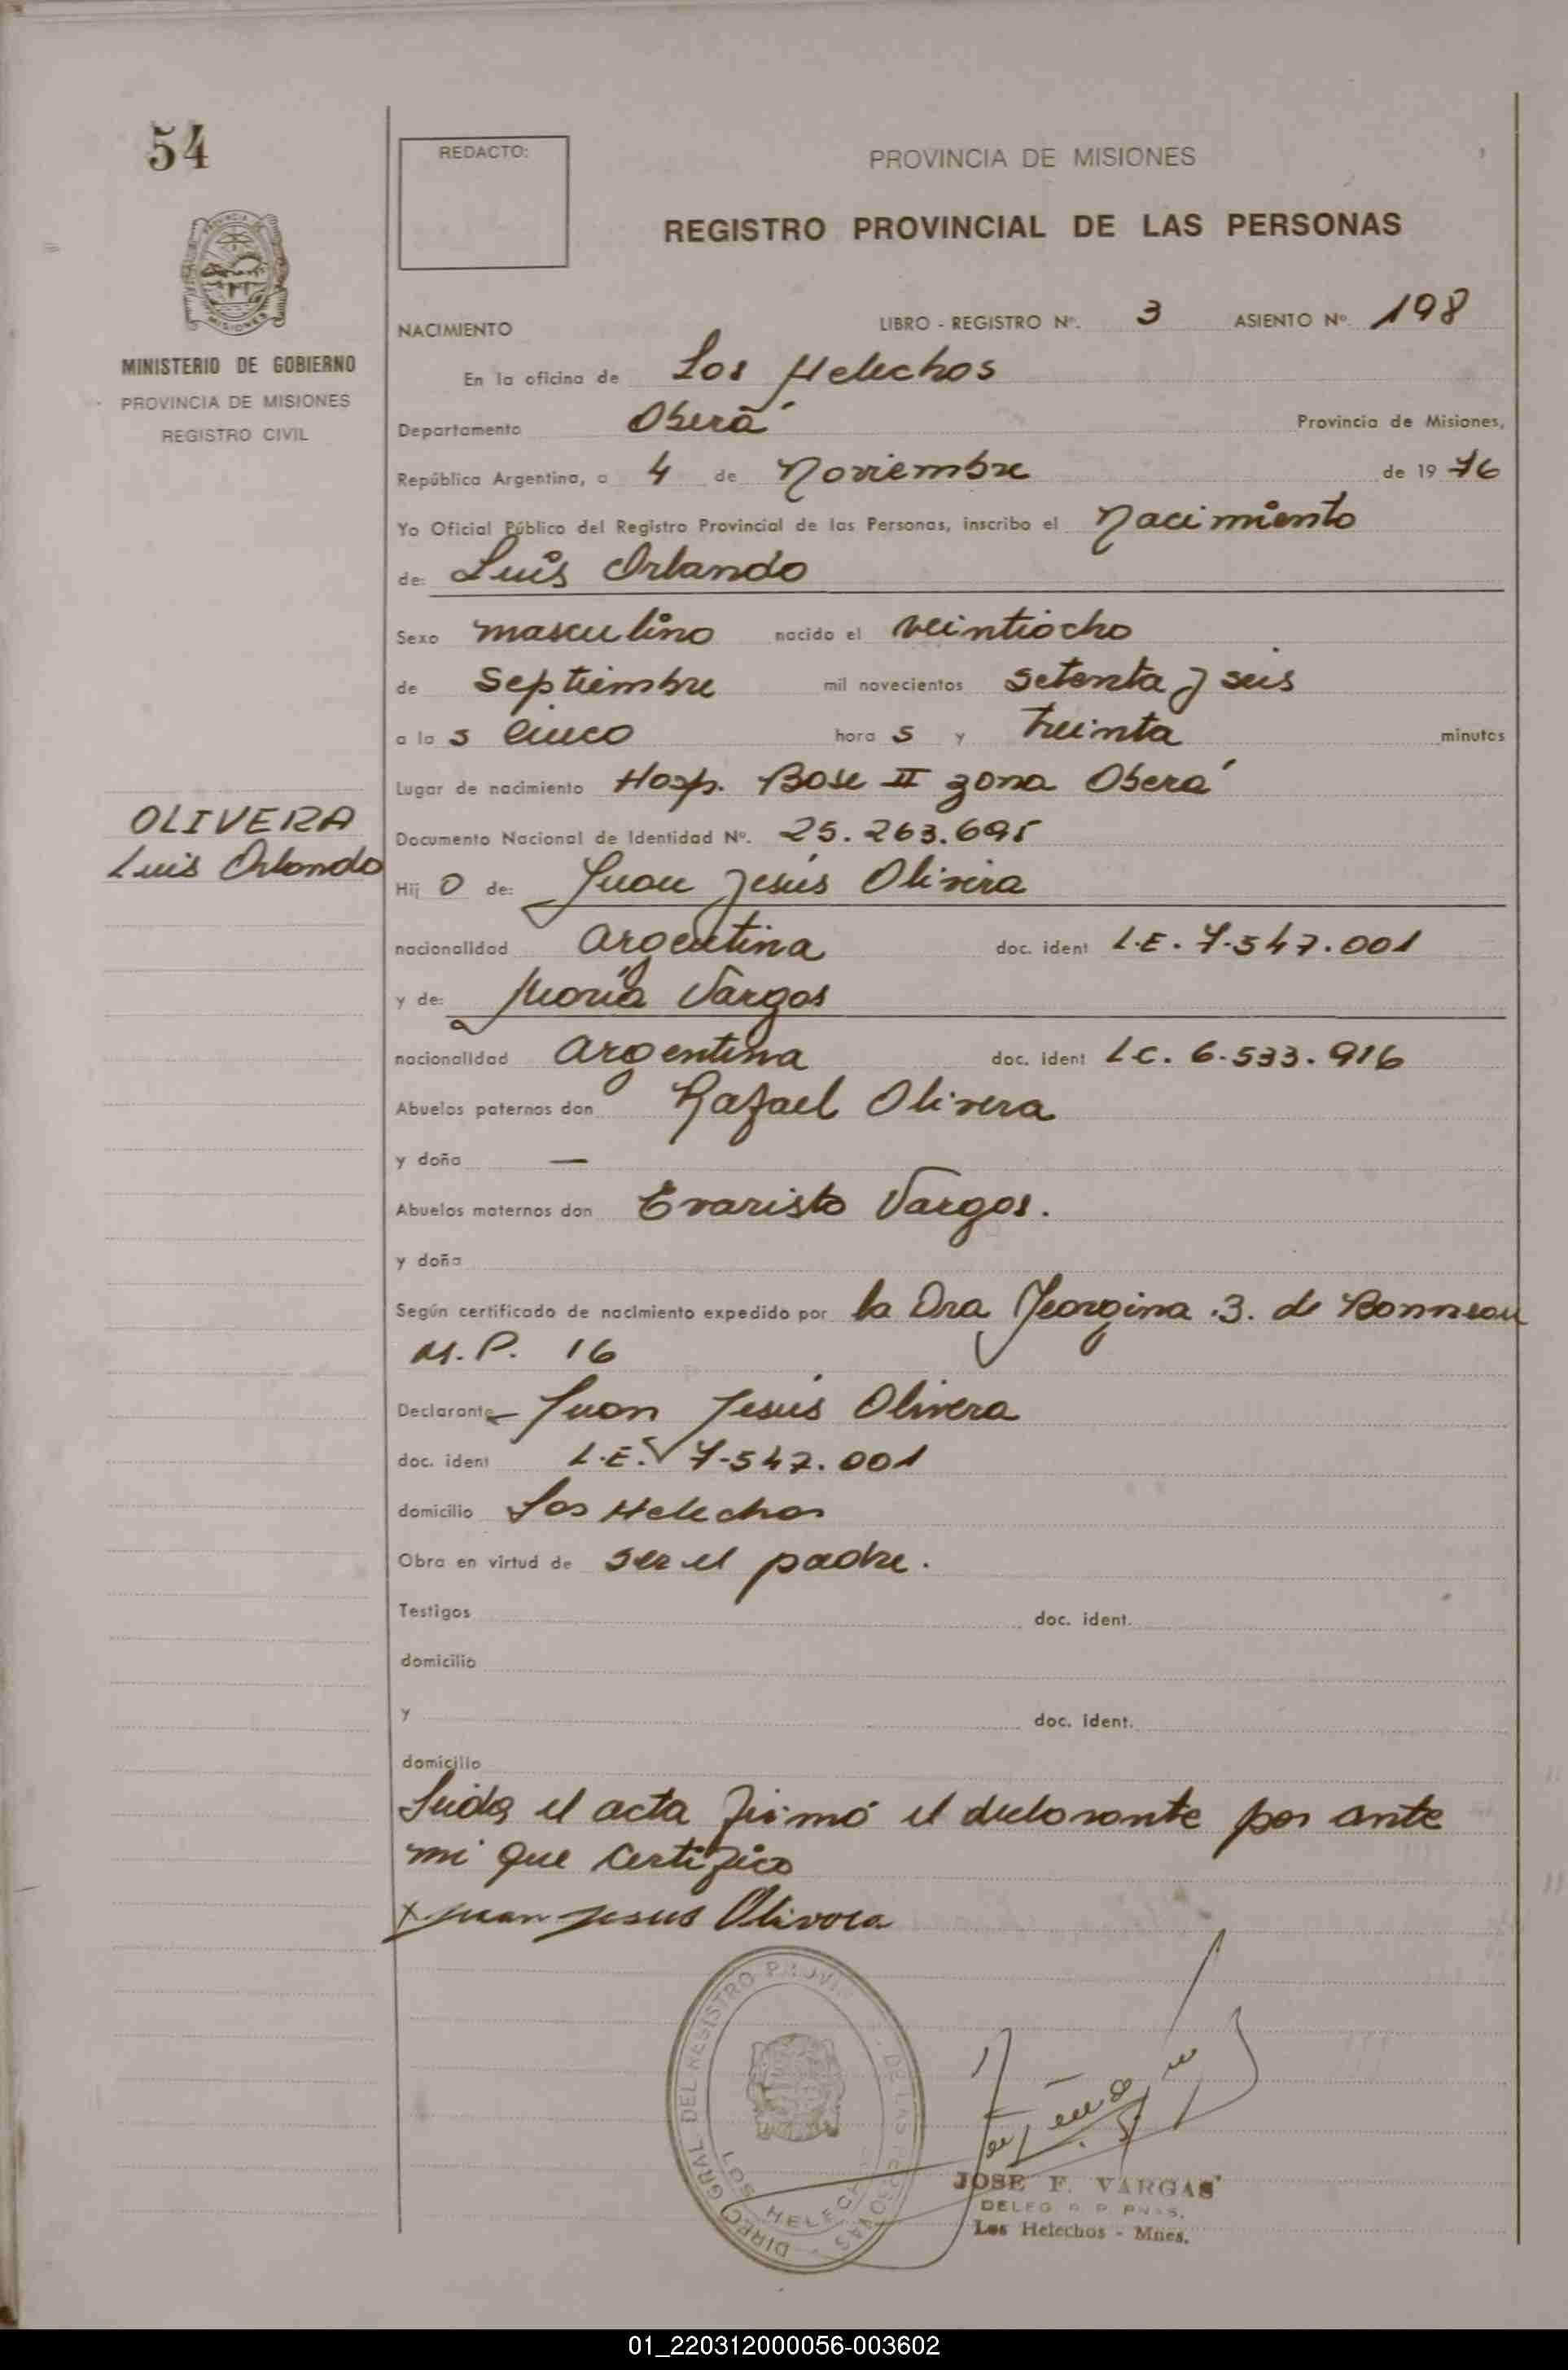 54
REDACTO:
PROVINCIA DE MISIONES
REGISTRO PROVINCIAL DE LAS PERSONAS
MINISTERIO DE GOBIERNO
PROVINCIA DE MISIONES
REGISTRO CIVIL
NACIMIENTO LIBRO - REGISTRO Nº. 3 ASIENTO Nº. 198
En la oficina de Los Helechos
Departamento Oberá Provincia de Misiones,
República Argentina, a 4 de Noviembre de 19 76
Yo Oficial Público del Registro Provincial de las Personas, inscribo el Nacimiento
de: Luis Orlando
Sexo masculino nacido el veintiocho
de Septiembre mil novecientos setenta y seis
a la s cinco hora s y treinta minutos
Lugar de nacimiento Hosp. Base II zona Oberá
OLIVERA
Luis Orlando
Documento Nacional de Identidad Nº. 25.263.695
Hij o de: Juan Jesús Olivera
nacionalidad argentina doc. ident L.E. 7.547.001
y de: María Vargas
nacionalidad argentina doc. ident L.C. 6.533.916
Abuelos paternos don Rafael Olivera
y doña —
Abuelos maternos don Evaristo Vargas.
y doña
Según certificado de nacimiento expedido por la Dra Georgina .3. de Bonneau
M.P. 16
Declarante Juan Jesús Olivera
doc. ident L.E. 7.547.001
domicilio Los Helechos
Obra en virtud de ser el padre.
Testigos doc. ident.
domicilio
y doc. ident.
domicilio
Leida el acta firmó el declarante por ante
mi que certifico
x Juan Jesus Olivera
DIREC. GRAL. DEL REGISTRO PROVI DE LAS PERSONAS
LOS HELECH
JOSE F. VARGAS
DELEG R. P. PNAS.
Los Helechos - Mnes.
01_220312000056-003602